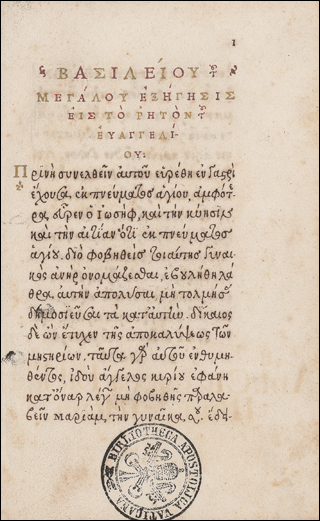 1
ΒΑΣΙΛΕΙΟΥ τοῦ
ΜΕΓΑΛΟΥ ΕΞΗΓΗΣΙΣ
ΕΙΣ ΤΟ ΡΗΤΟΝ τοῦ
ΕΥΑΓΓΕΛΙ-
ΟΥ:
Πρὶν ἢ συνελθεῖν αὐτοὺς εὑρέθη ἐν γαστρὶ
ἔχουσα, ἐκ πνεύματος ἁγίου. ἀμφότε
ρα, εὗρεν ὁ Ἰωσὴφ, καὶ τὴν κύησιν,
καὶ τὴν αἰτίαν ὅτι ἐκ πνεύματος
ἁγίου. διὸ φοβηθεὶς τοιαύτης γυναι
κὸς ἀνὴρ ὀνομάζεσθαι, ἐβουλήθη λά
θρα αὐτὴν ἀπολῦσαι, μὴ τολμήσας
δημοσιεῦσαι τὰ κατ' αὐτήν. δίκαιος
δὲ ὢν ἔτυχεν τῆς ἀποκαλύψεως τῶν
μυστηρίων. ταῦτα γὰρ αὐτοῦ ἐνθυμη
θέντος, ἰδοὺ ἄγγελος κυρίου ἐφάνη
κατ' ὄναρ λέγων μὴ φοβηθῇς παραλα
βεῖν Μαριὰμ, τὴν γυναῖκα σου.
BIBLIOTHECA APOSTOLICA VATICANA